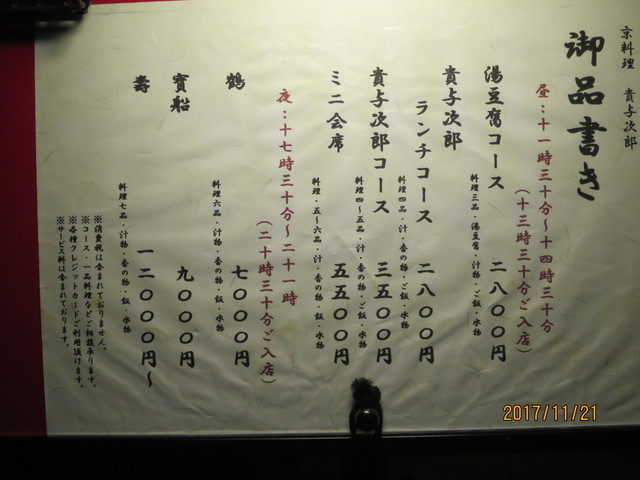 京料理 貴与次郎
御品書き
昼：十一時三十分～十四時三十分
（十三時三十分ご入店）
湯豆腐コース 二八〇〇円
料理三品・湯豆腐・汁物・ご飯・水物
貴与次郎
ランチコース 二八〇〇円
料理四品・汁・香の物・ご飯・水物
貴与次郎コース 三五〇〇円
料理四～五品・汁・香の物・ご飯・水物
ミニ会席 五五〇〇円
料理・五～六品・汁・香の物・飯・水物
夜：十七時三十分～二十一時
（二十時三十分ご入店）
鶴 七〇〇〇円
料理六品・汁物・香の物・飯・水物
寳船 九〇〇〇円
壽 一二〇〇〇円～
料理七品・汁物・香の物・飯・水物
※消費税は含まれておりません。
※コース・一品料理などご相談承ります。
※各種クレジットカードご利用頂けます。
※サービス料は含まれております。
2017/11/21